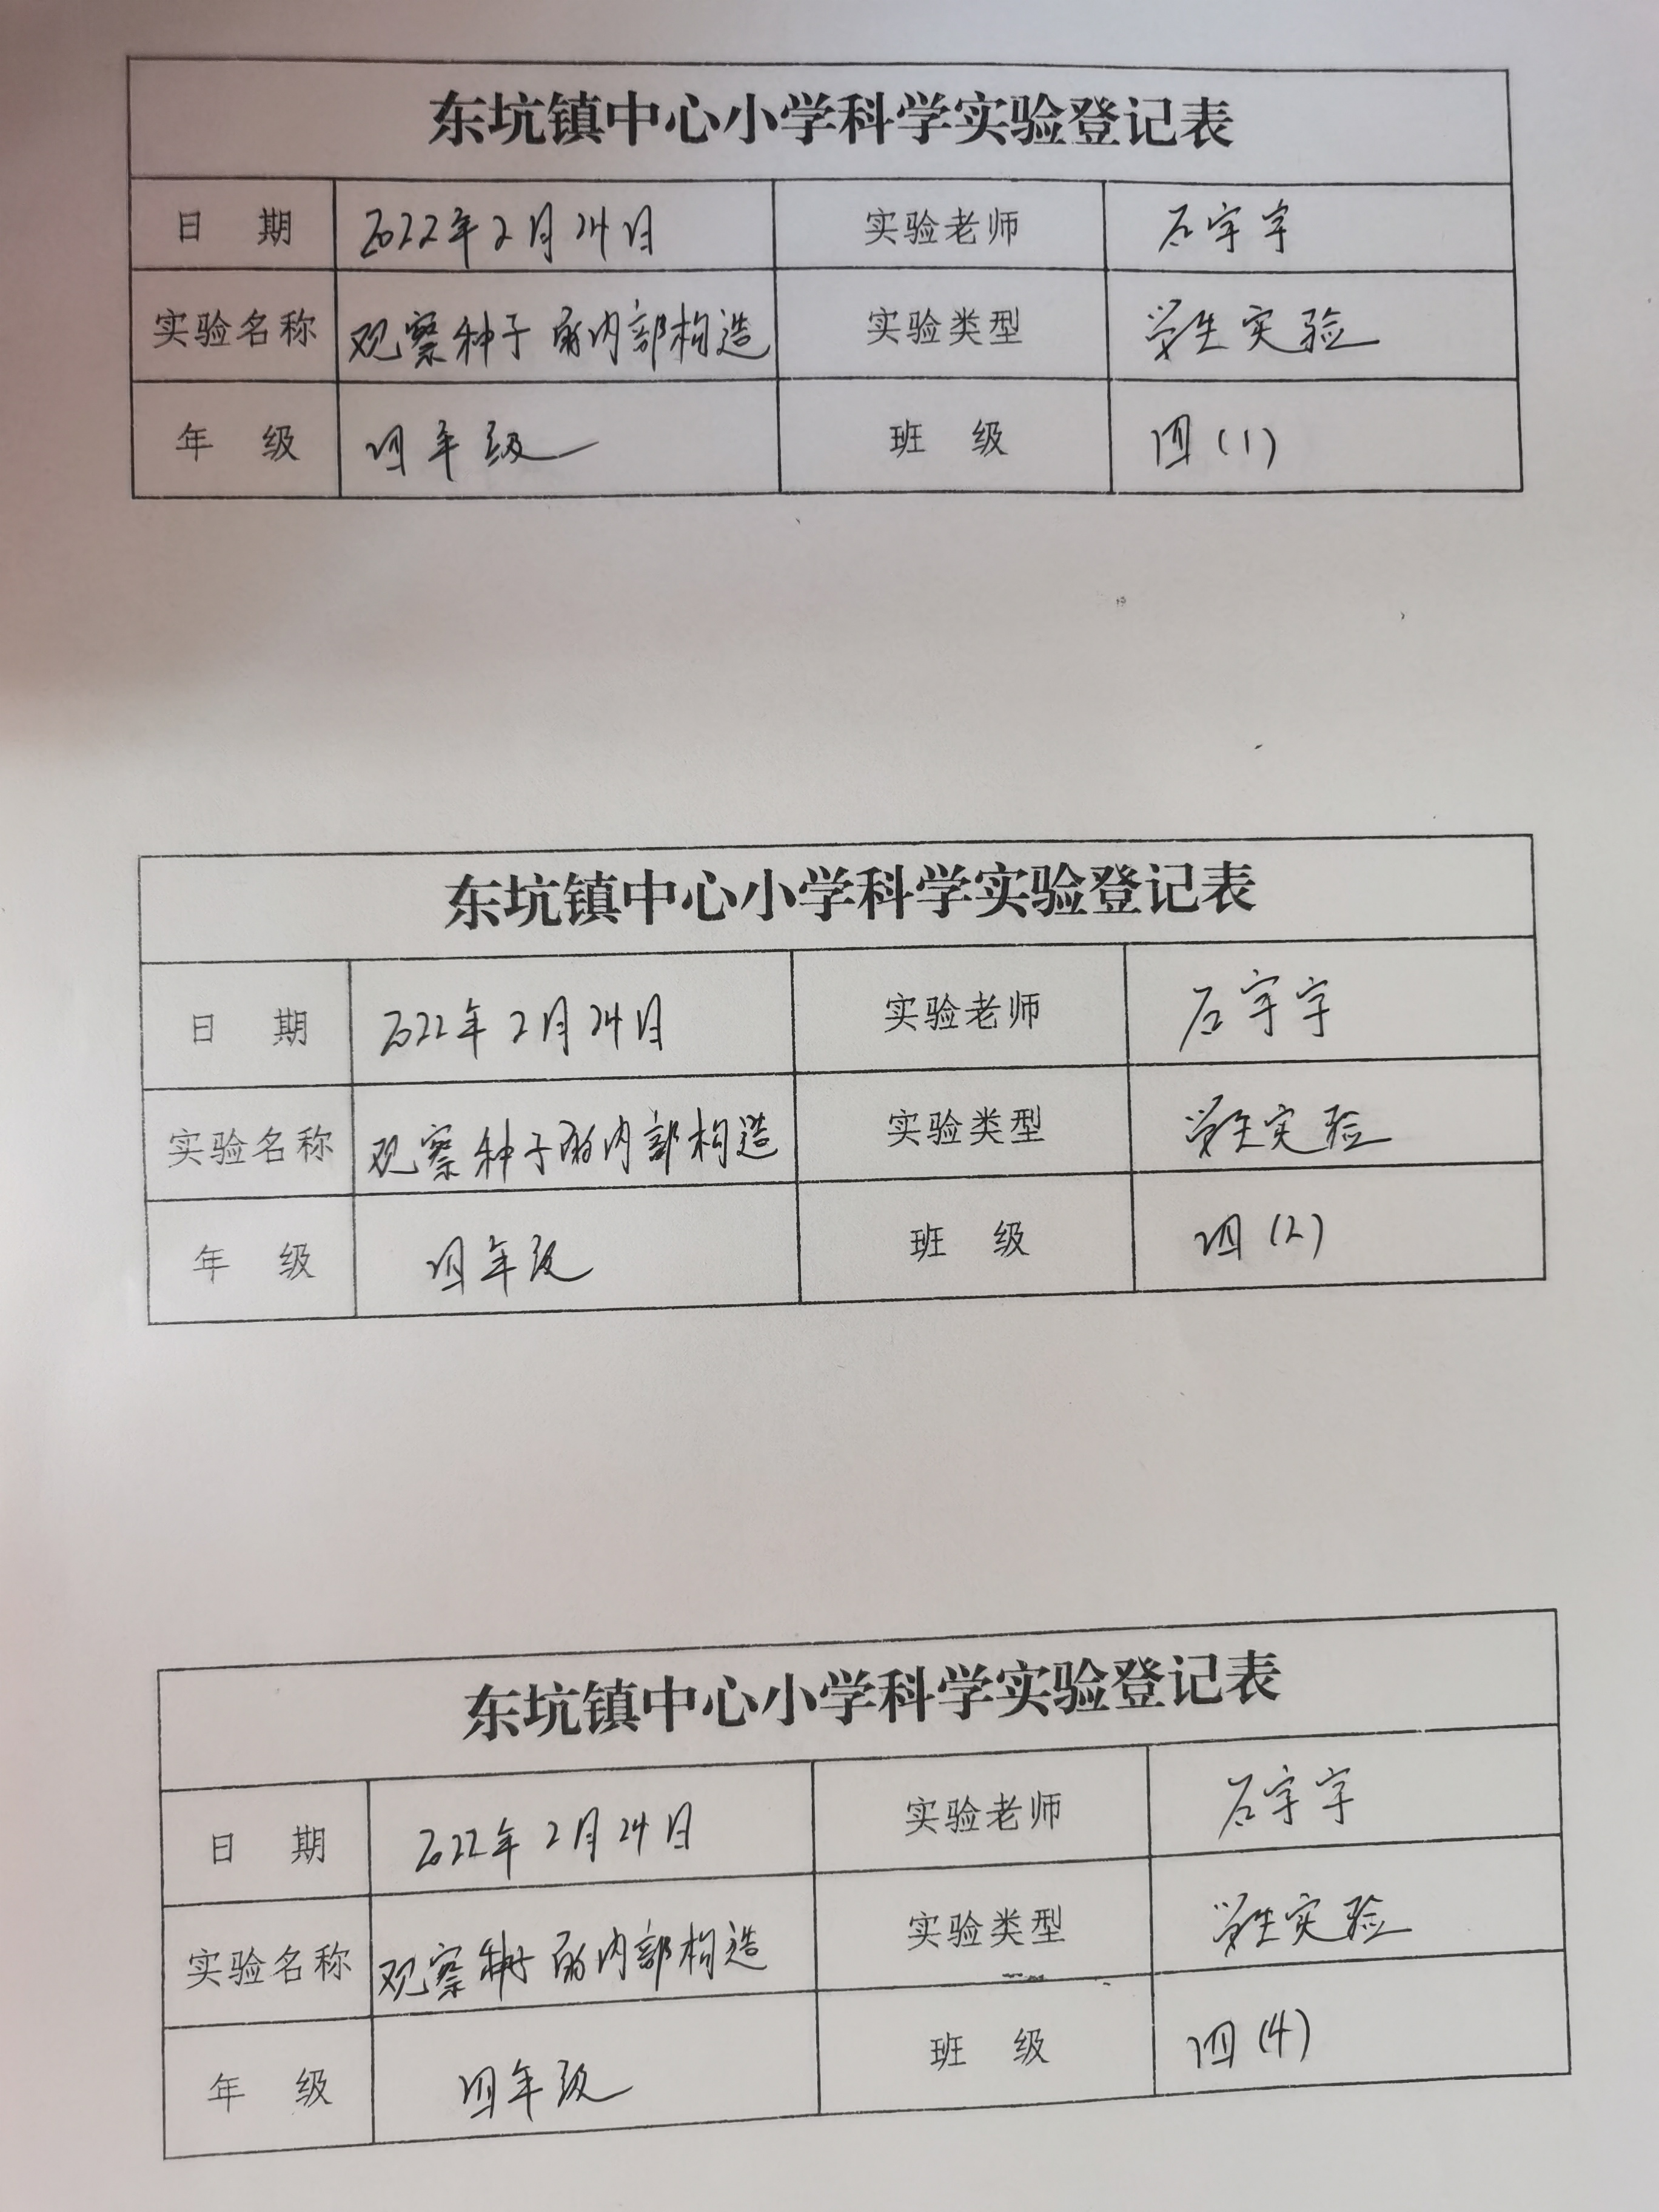 东坑镇中心小学科学实验登记表
日 期 2022年2月24日 实验老师 石宇宇
实验名称 观察种子的内部构造 实验类型 学生实验
年 级 四年级 班 级 四(1)
东坑镇中心小学科学实验登记表
日 期 2022年2月24日 实验老师 石宇宇
实验名称 观察种子的内部构造 实验类型 学生实验
年 级 四年级 班 级 四(2)
东坑镇中心小学科学实验登记表
日 期 2022年2月24日 实验老师 石宇宇
实验名称 观察种子的内部构造 实验类型 学生实验
年 级 四年级 班 级 四(4)